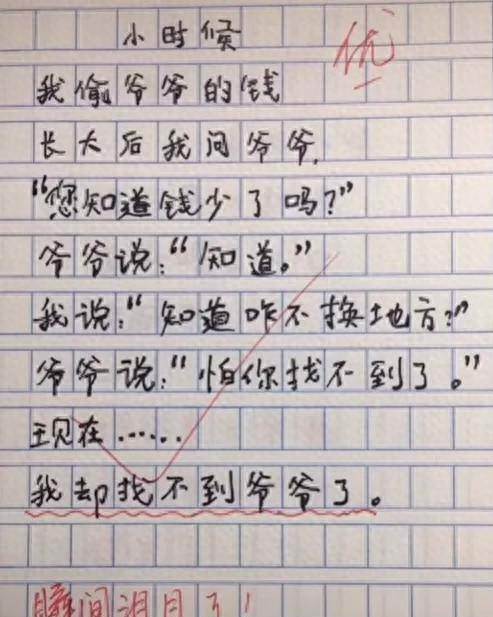 小时候
优
我偷爷爷的钱
长大后我问爷爷,
“您知道钱少了吗?”
爷爷说:“知道。”
我说:“知道咋不换地方?”
爷爷说:“怕你找不到了。”
现在……
我却找不到爷爷了。
瞬间泪目了!